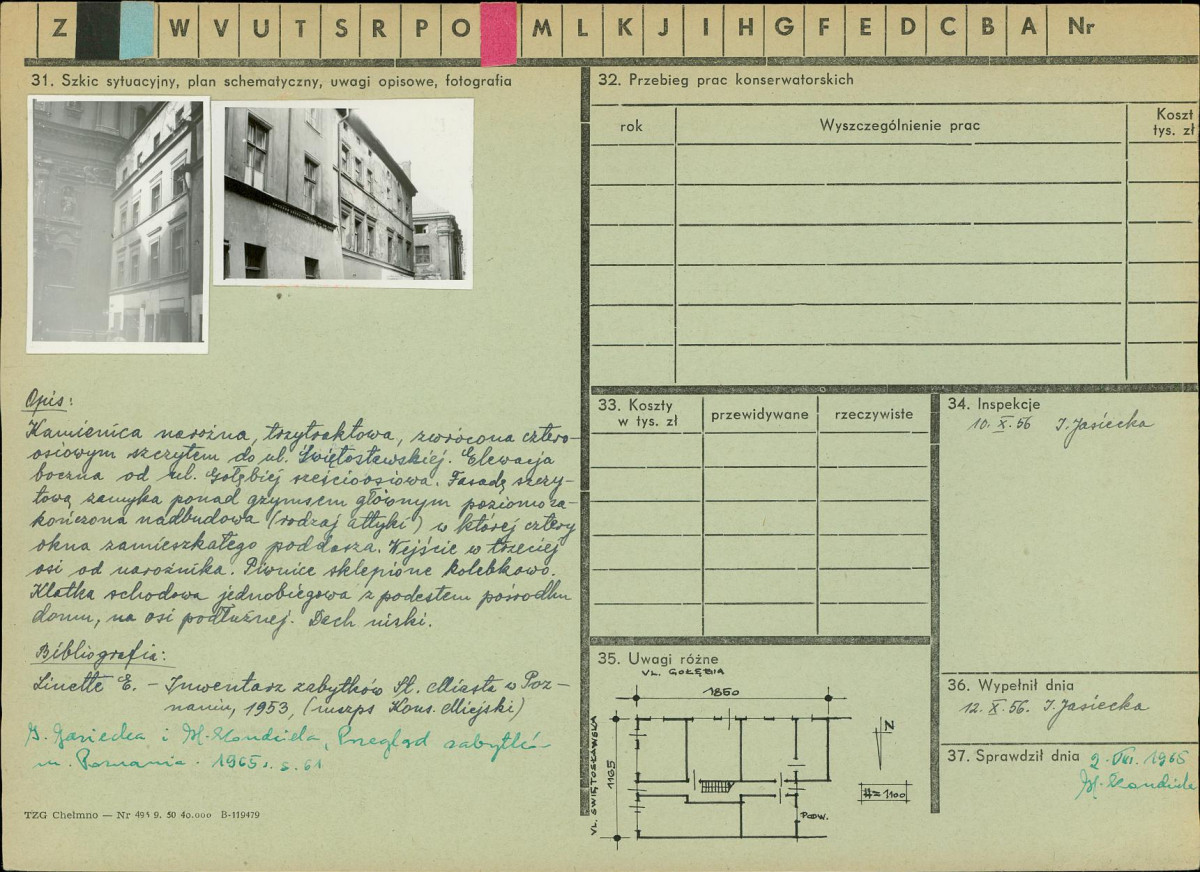 Z W V U T S R P O M L K J I H G F E D C B A Nr
31. Szkic sytuacyjny, plan schematyczny, uwagi opisowe, fotografia
Opis:
Kamienica narożna, trzytraktowa, zwrócona cztero-
osiowym szczytem do ul. Świętosławskiej. Elewacja
boczna od ul. Gołębiej sześcioosiowa. Fasadę szczy-
tową zamyka ponad gzymsem głównym poziomo za-
kończona nadbudowa (rodzaj attyki) w której cztery
okna zamieszkałego poddasza. Wejście w trzeciej
osi od narożnika. Piwnice sklepione kolebkowo.
Klatka schodowa jednobiegowa z podestem pośrodku
domu, na osi podłużnej. Dach niski.
Bibliografia:
Linette E. – Inwentarz zabytków St. Miasta w Poz-
naniu, 1953, (mszps Kons. Miejski)
I. Jasiecka i M. Kondziela, Przegląd zabytków
m. Poznania. 1965 r. s. 61
TZG Chełmno — Nr 493 9. 50 40.000 B-119479
32. Przebieg prac konserwatorskich
rok
Wyszczególnienie prac
Koszt
tys. zł
33. Koszty
w tys. zł
przewidywane
rzeczywiste
34. Inspekcje
10. X. 56 I. Jasiecka
35. Uwagi różne
UL. GOŁĘBIA
1850
UL. ŚWIĘTOSŁAWSKA
1165
PODW.
N
1100
36. Wypełnił dnia
12. X. 56. I. Jasiecka
37. Sprawdził dnia
1965
M. Kondziela